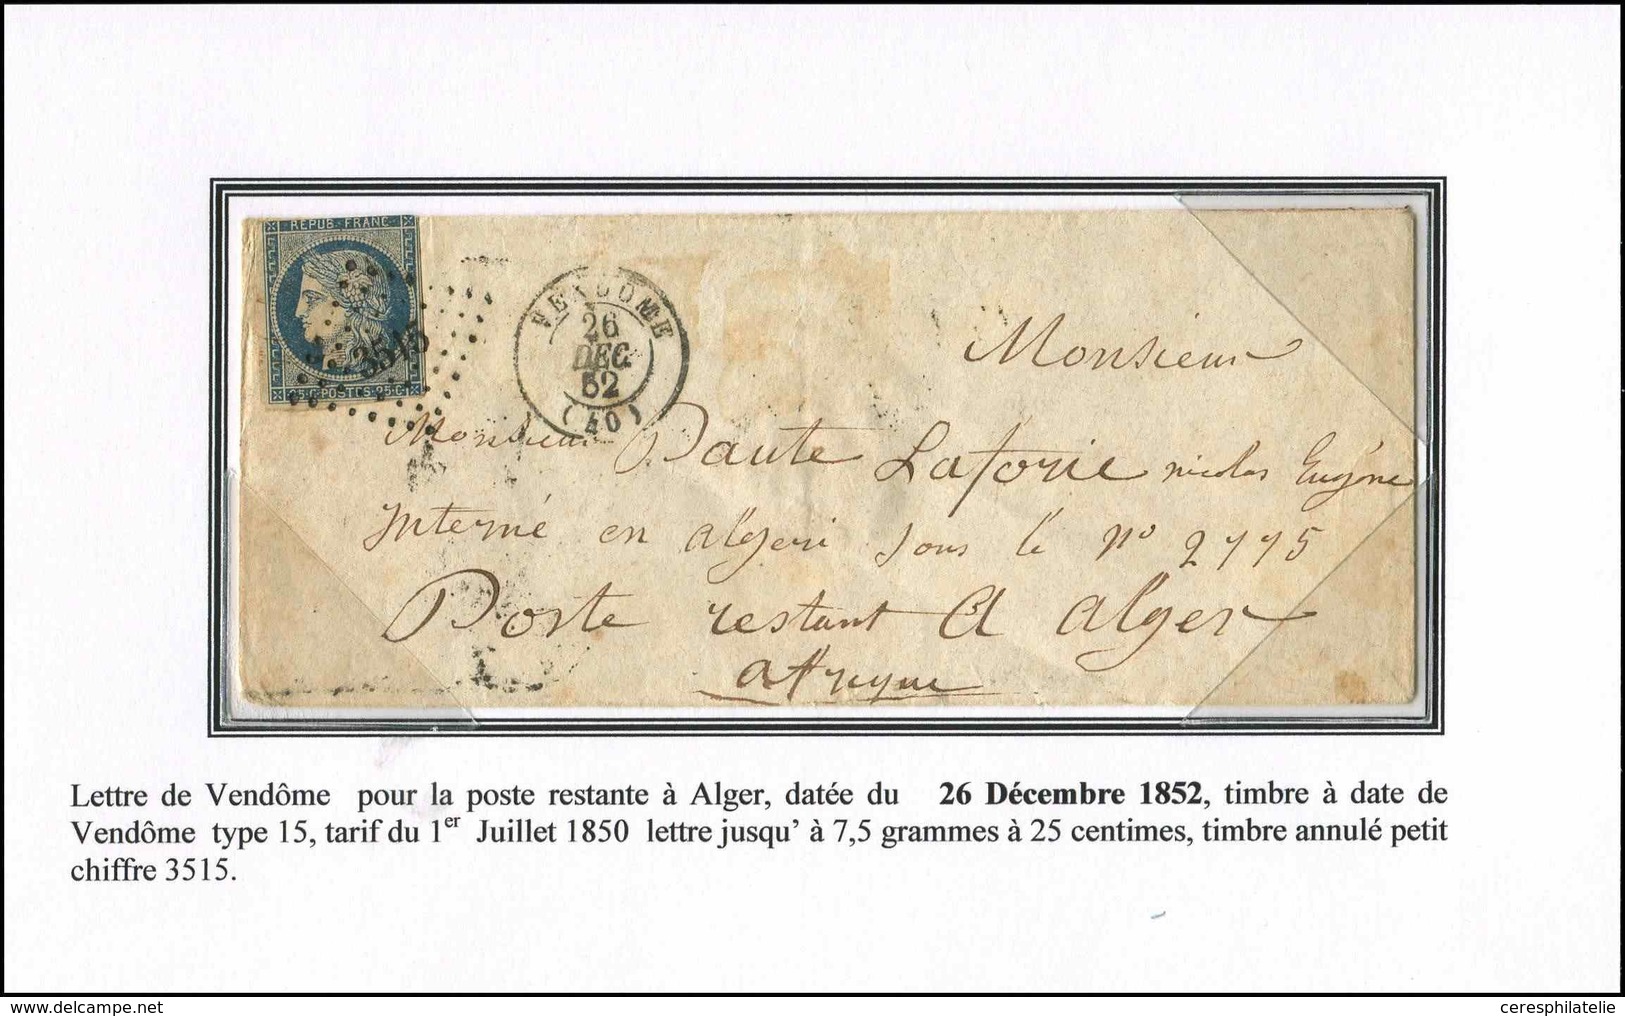 REPUB. FRANC.
3515
25 C. POSTES. 25 C.
VENDOME
26
DEC.
52
(40)
Monsieur
Monsieur Daute Laforie nicolas Eugéne
Interné en algeri sous le n° 2775
Poste restant a alger
afrique
Lettre de Vendôme pour la poste restante à Alger, datée du 26 Décembre 1852, timbre à date de
Vendôme type 15, tarif du 1er Juillet 1850 lettre jusqu' à 7,5 grammes à 25 centimes, timbre annulé petit
chiffre 3515.
delcampe.net
ceresphilatelie